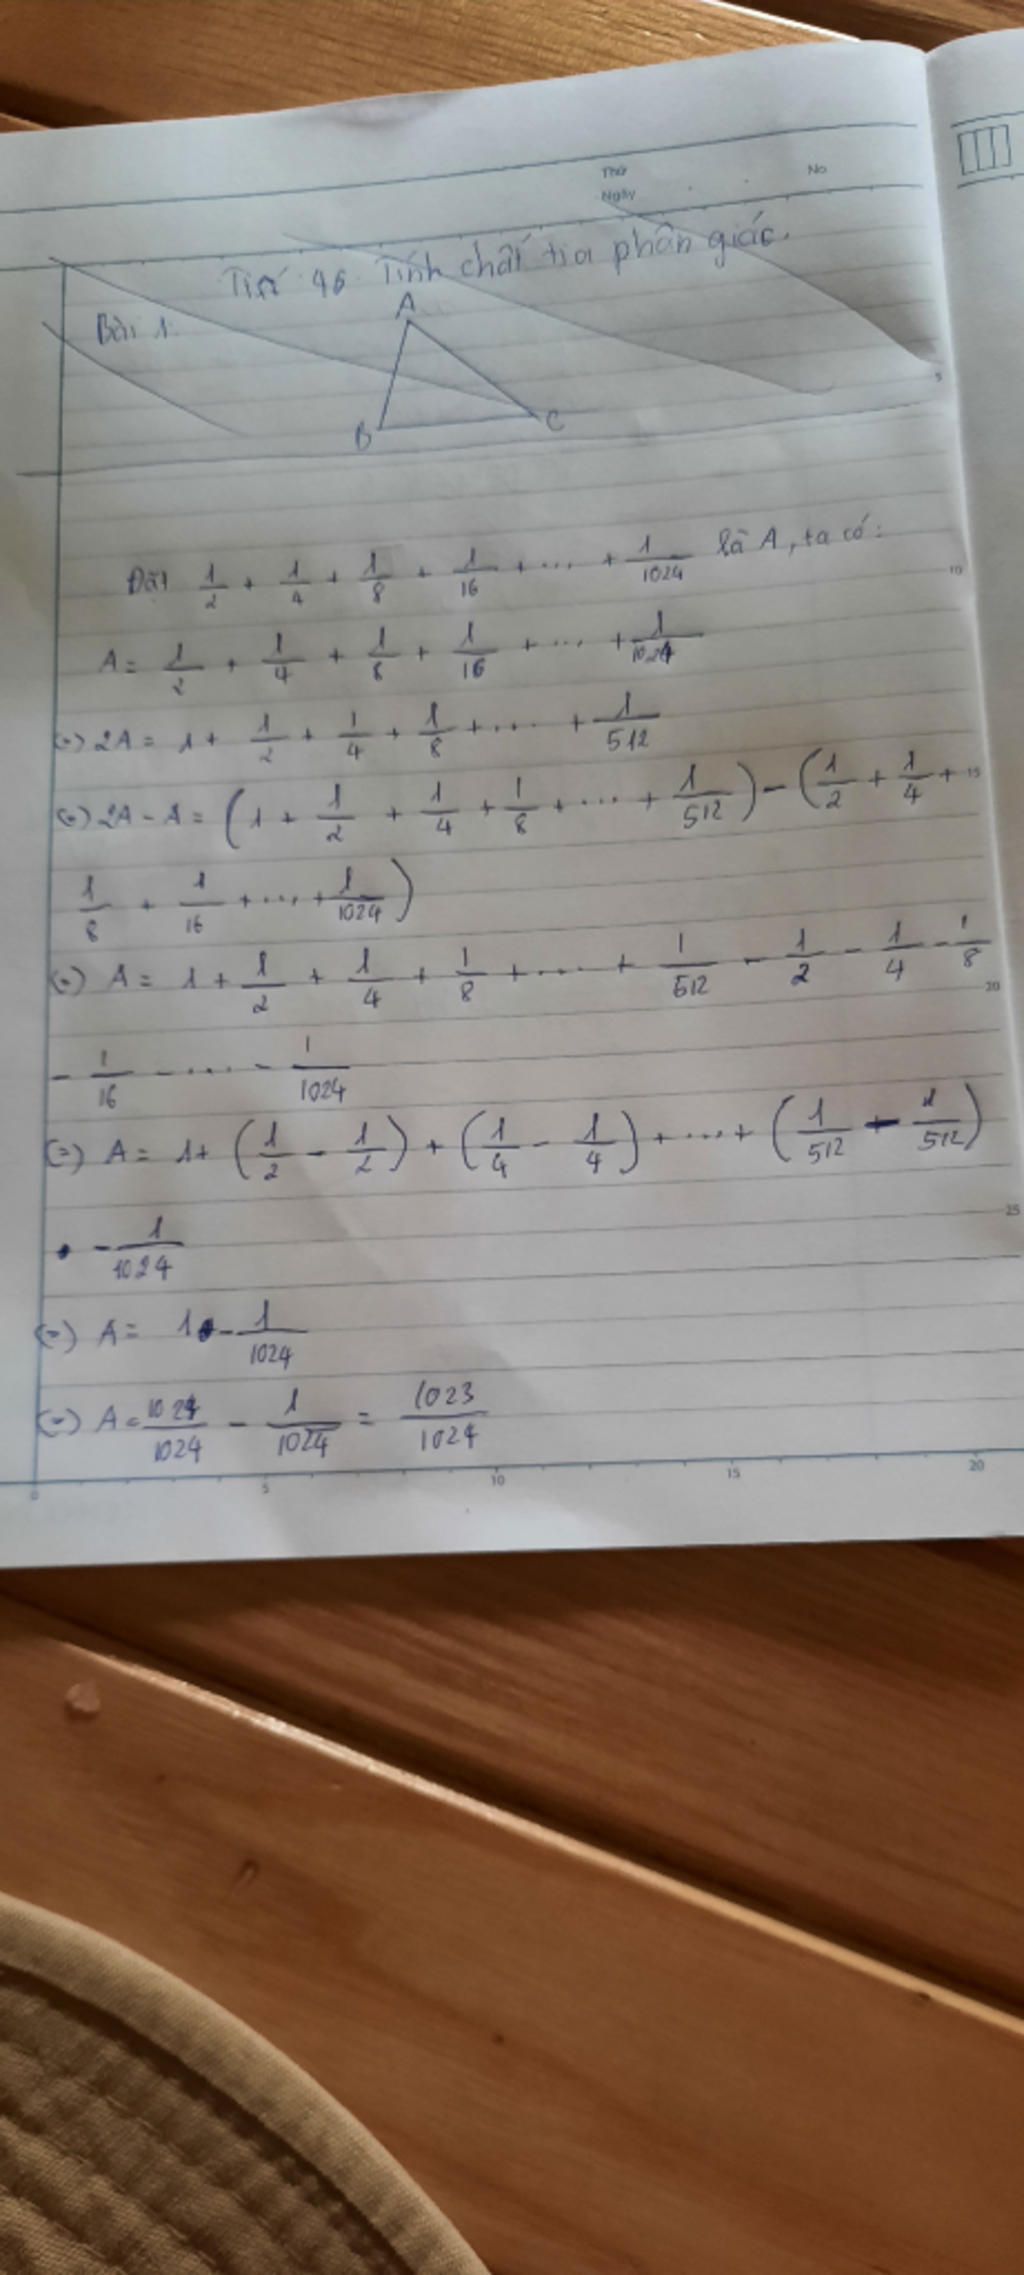 Thứ No
Ngày
Tiết 46 Tính chất tia phân giác.
Bài 1.
A
B C
5
Đặt 1/2 + 1/4 + 1/8 + 1/16 + ... + 1/1024 là A, ta có:
10
A = 1/2 + 1/4 + 1/8 + 1/16 + ... + 1/1024
(=) 2A = 1 + 1/2 + 1/4 + 1/8 + ... + 1/512
(=) 2A - A = (1 + 1/2 + 1/4 + 1/8 + ... + 1/512) - (1/2 + 1/4 +
15
1/8 + 1/16 + ... + 1/1024)
(=) A = 1 + 1/2 + 1/4 + 1/8 + ... + 1/512 - 1/2 - 1/4 - 1/8
20
- 1/16 - ... - 1/1024
(=) A = 1 + (1/2 - 1/2) + (1/4 - 1/4) + ... + (1/512 - 1/512)
25
- 1/1024
(=) A = 1 - 1/1024
(=) A = 1024/1024 - 1/1024 = 1023/1024
0 5 10 15 20